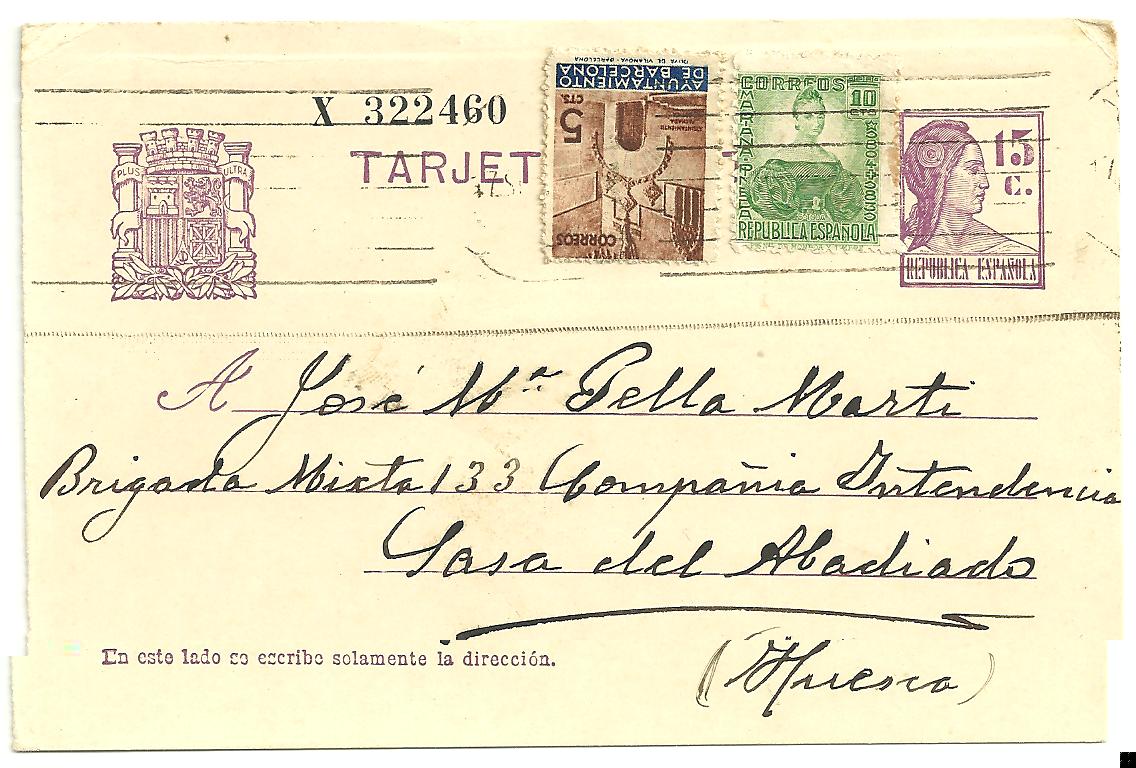 X 322460
TARJET
PLUS ULTRA
AYUNTAMIENTO
DE BARCELONA
OLIVA DE VILANOVA - BARCELONA
5
CTS.
CORREOS
CORREOS
10
CTS
MARIANA PINEDA
REPUBLICA ESPAÑOLA
15
C.
REPUBLICA ESPAÑOLA
A José Mª Pella Marti
Brigada Mixta 133 Compañia Intendencia
Sasa del Abadiado
(Huesca)
En este lado se escribe solamente la dirección.